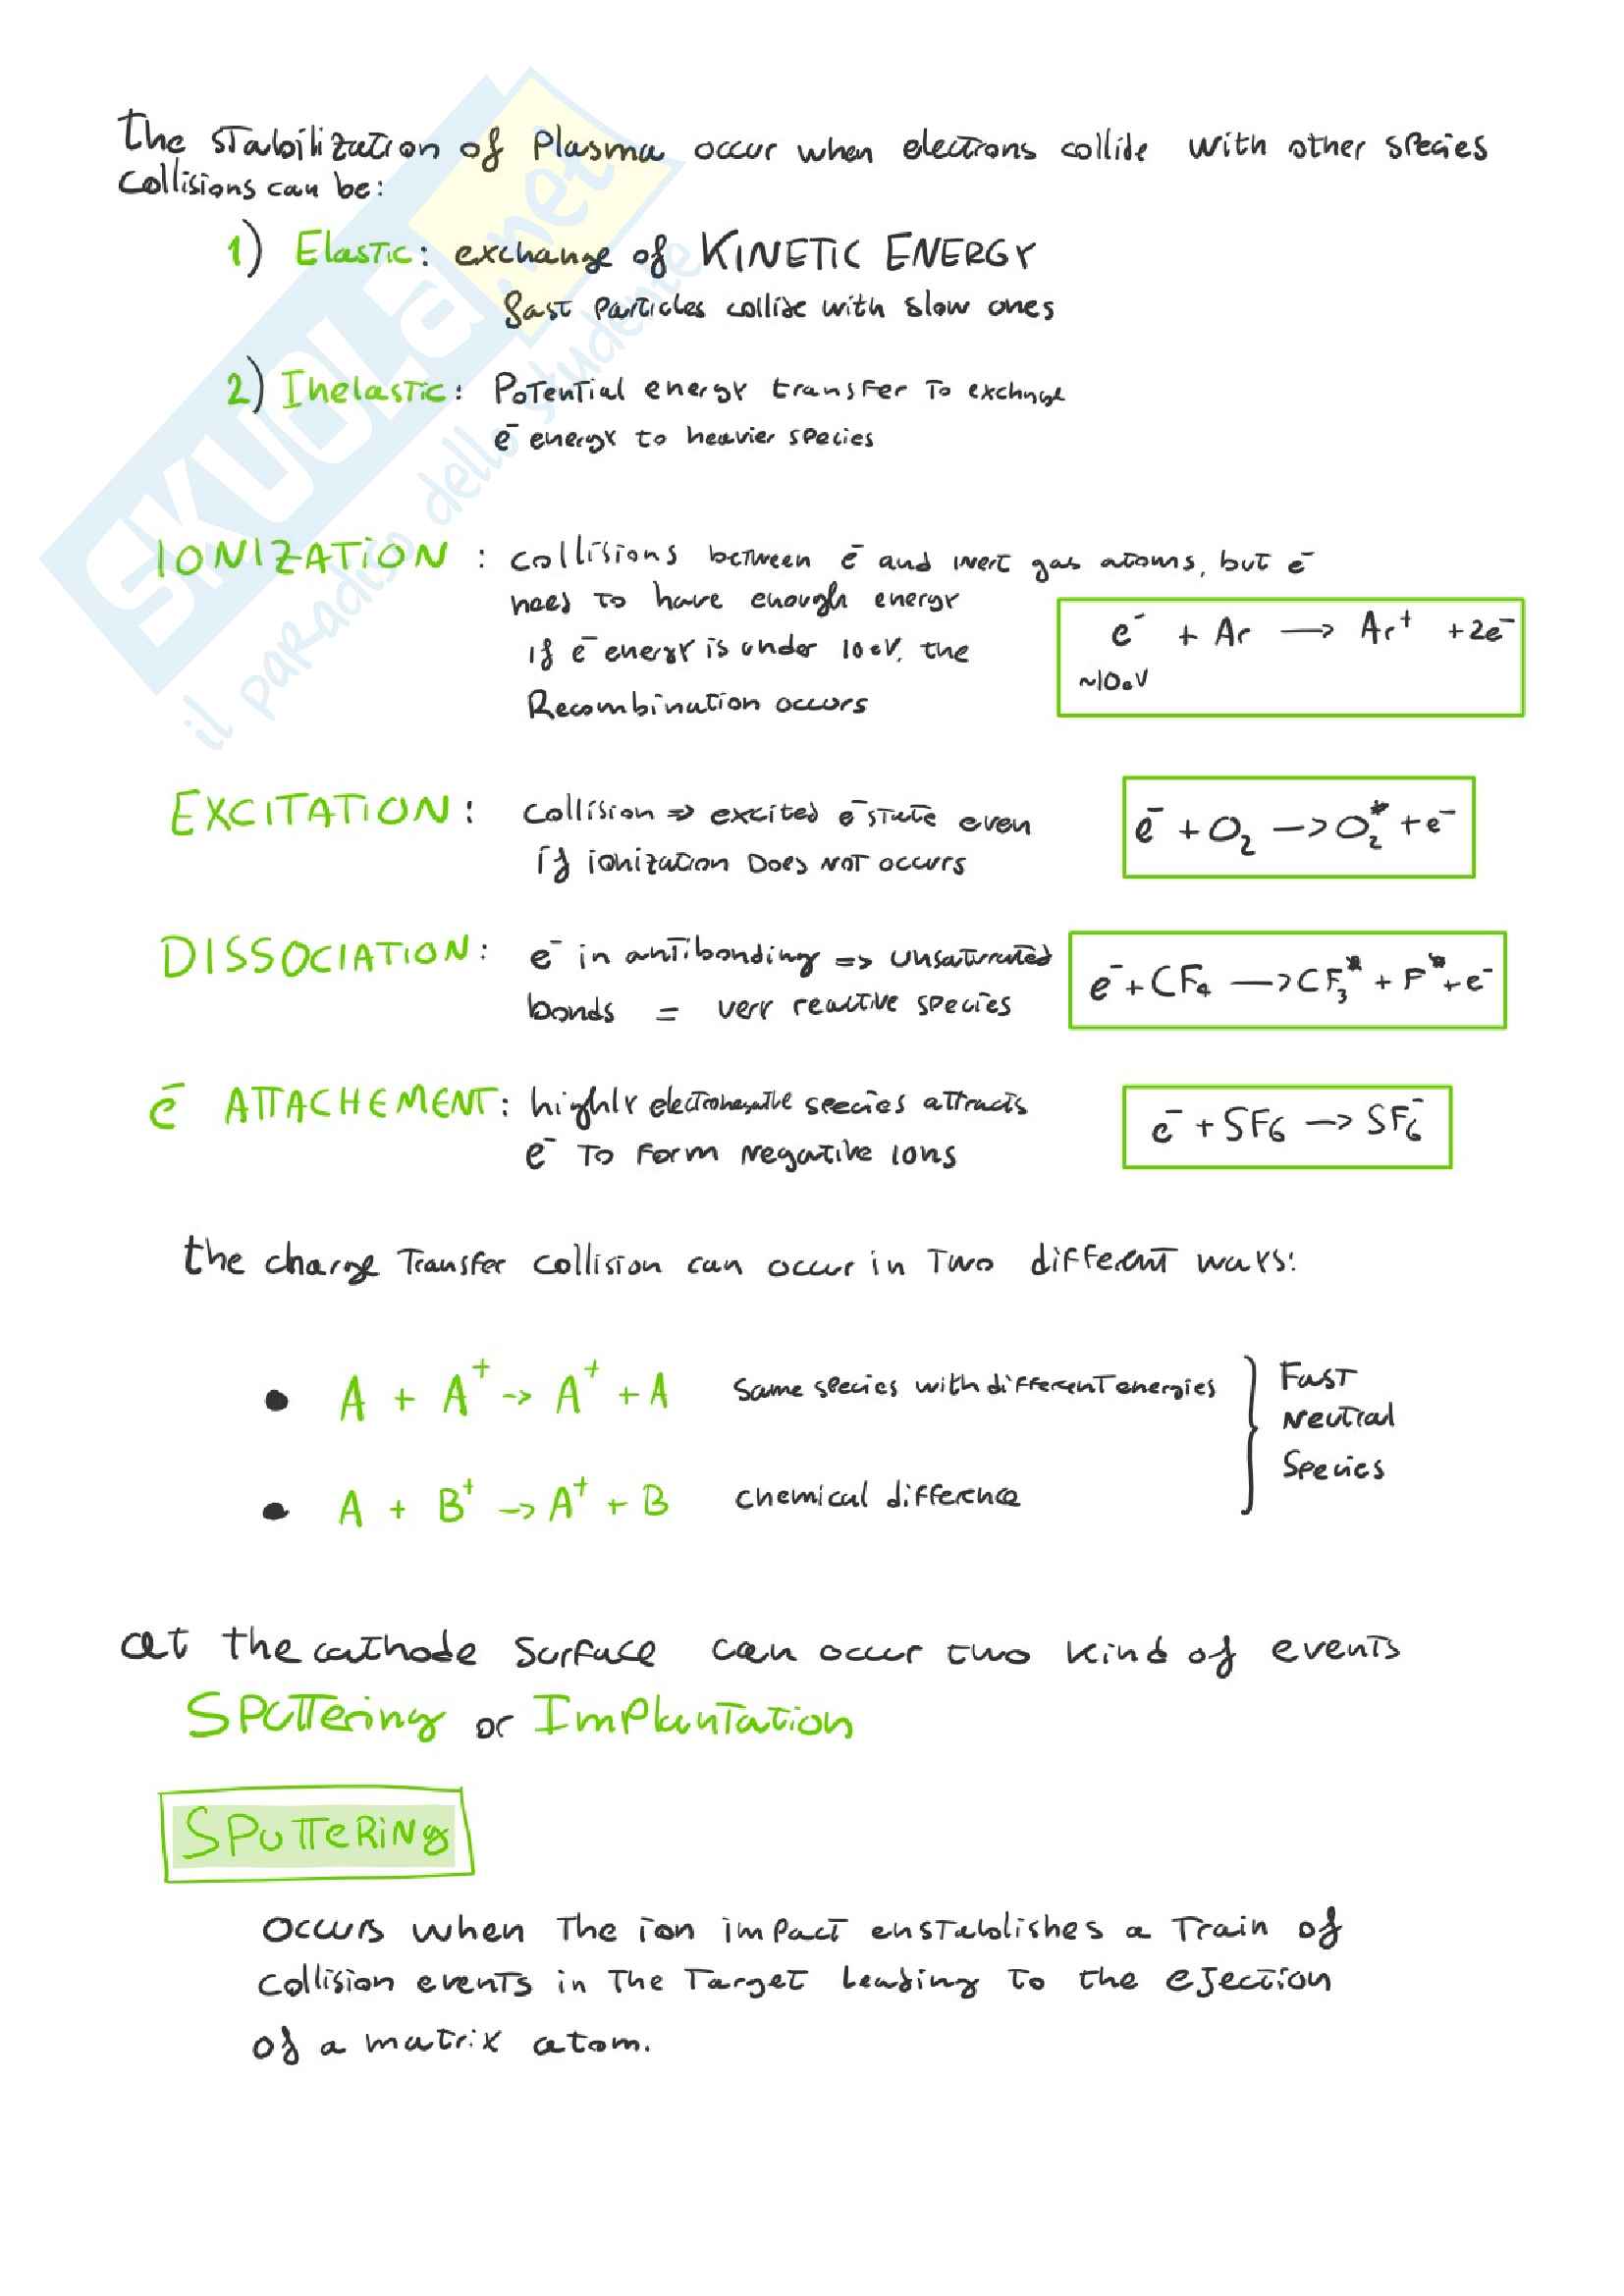 the stabilization of Plasma occur when electrons collide with other species
collisions can be:
1) Elastic: exchange of KINETIC ENERGY
fast particles collide with slow ones
2) Inelastic: Potential energy transfer to exchnge
e⁻ energy to heavier species
IONIZATION : collisions between e⁻ and inert gas atoms, but e⁻
need to have enough energy
if e⁻ energy is under 10 eV, the
Recombination occurs
e⁻ + Ar → Ar⁺ + 2e⁻
~10eV
EXCITATION: collision ⇒ excited e⁻ state even
if ionization Does not occurs
e⁻ + O₂ → O₂* + e⁻
DISSOCIATION: e⁻ in antibonding => unsaturated
bonds = very reactive species
e⁻ + CF₄ → CF₃* + F* + e⁻
e⁻ ATTACHEMENT: highly electronegative species attracts
e⁻ to form negative ions
e⁻ + SF₆ → SF₆⁻
the charge Transfer collision can occur in two different ways:
• A + A⁺ → A⁺ + A same species with different energies
• A + B⁺ → A⁺ + B chemical difference
Fast
Neutral
Species
at the cathode surface can occur two kind of events
Sputtering or Implantation
SPUTTERING
occurs when the ion impact enstablishes a train of
collision events in the target leading to the ejection
of a matrix atom.
SKUOLA.net
il paradiso dello studente